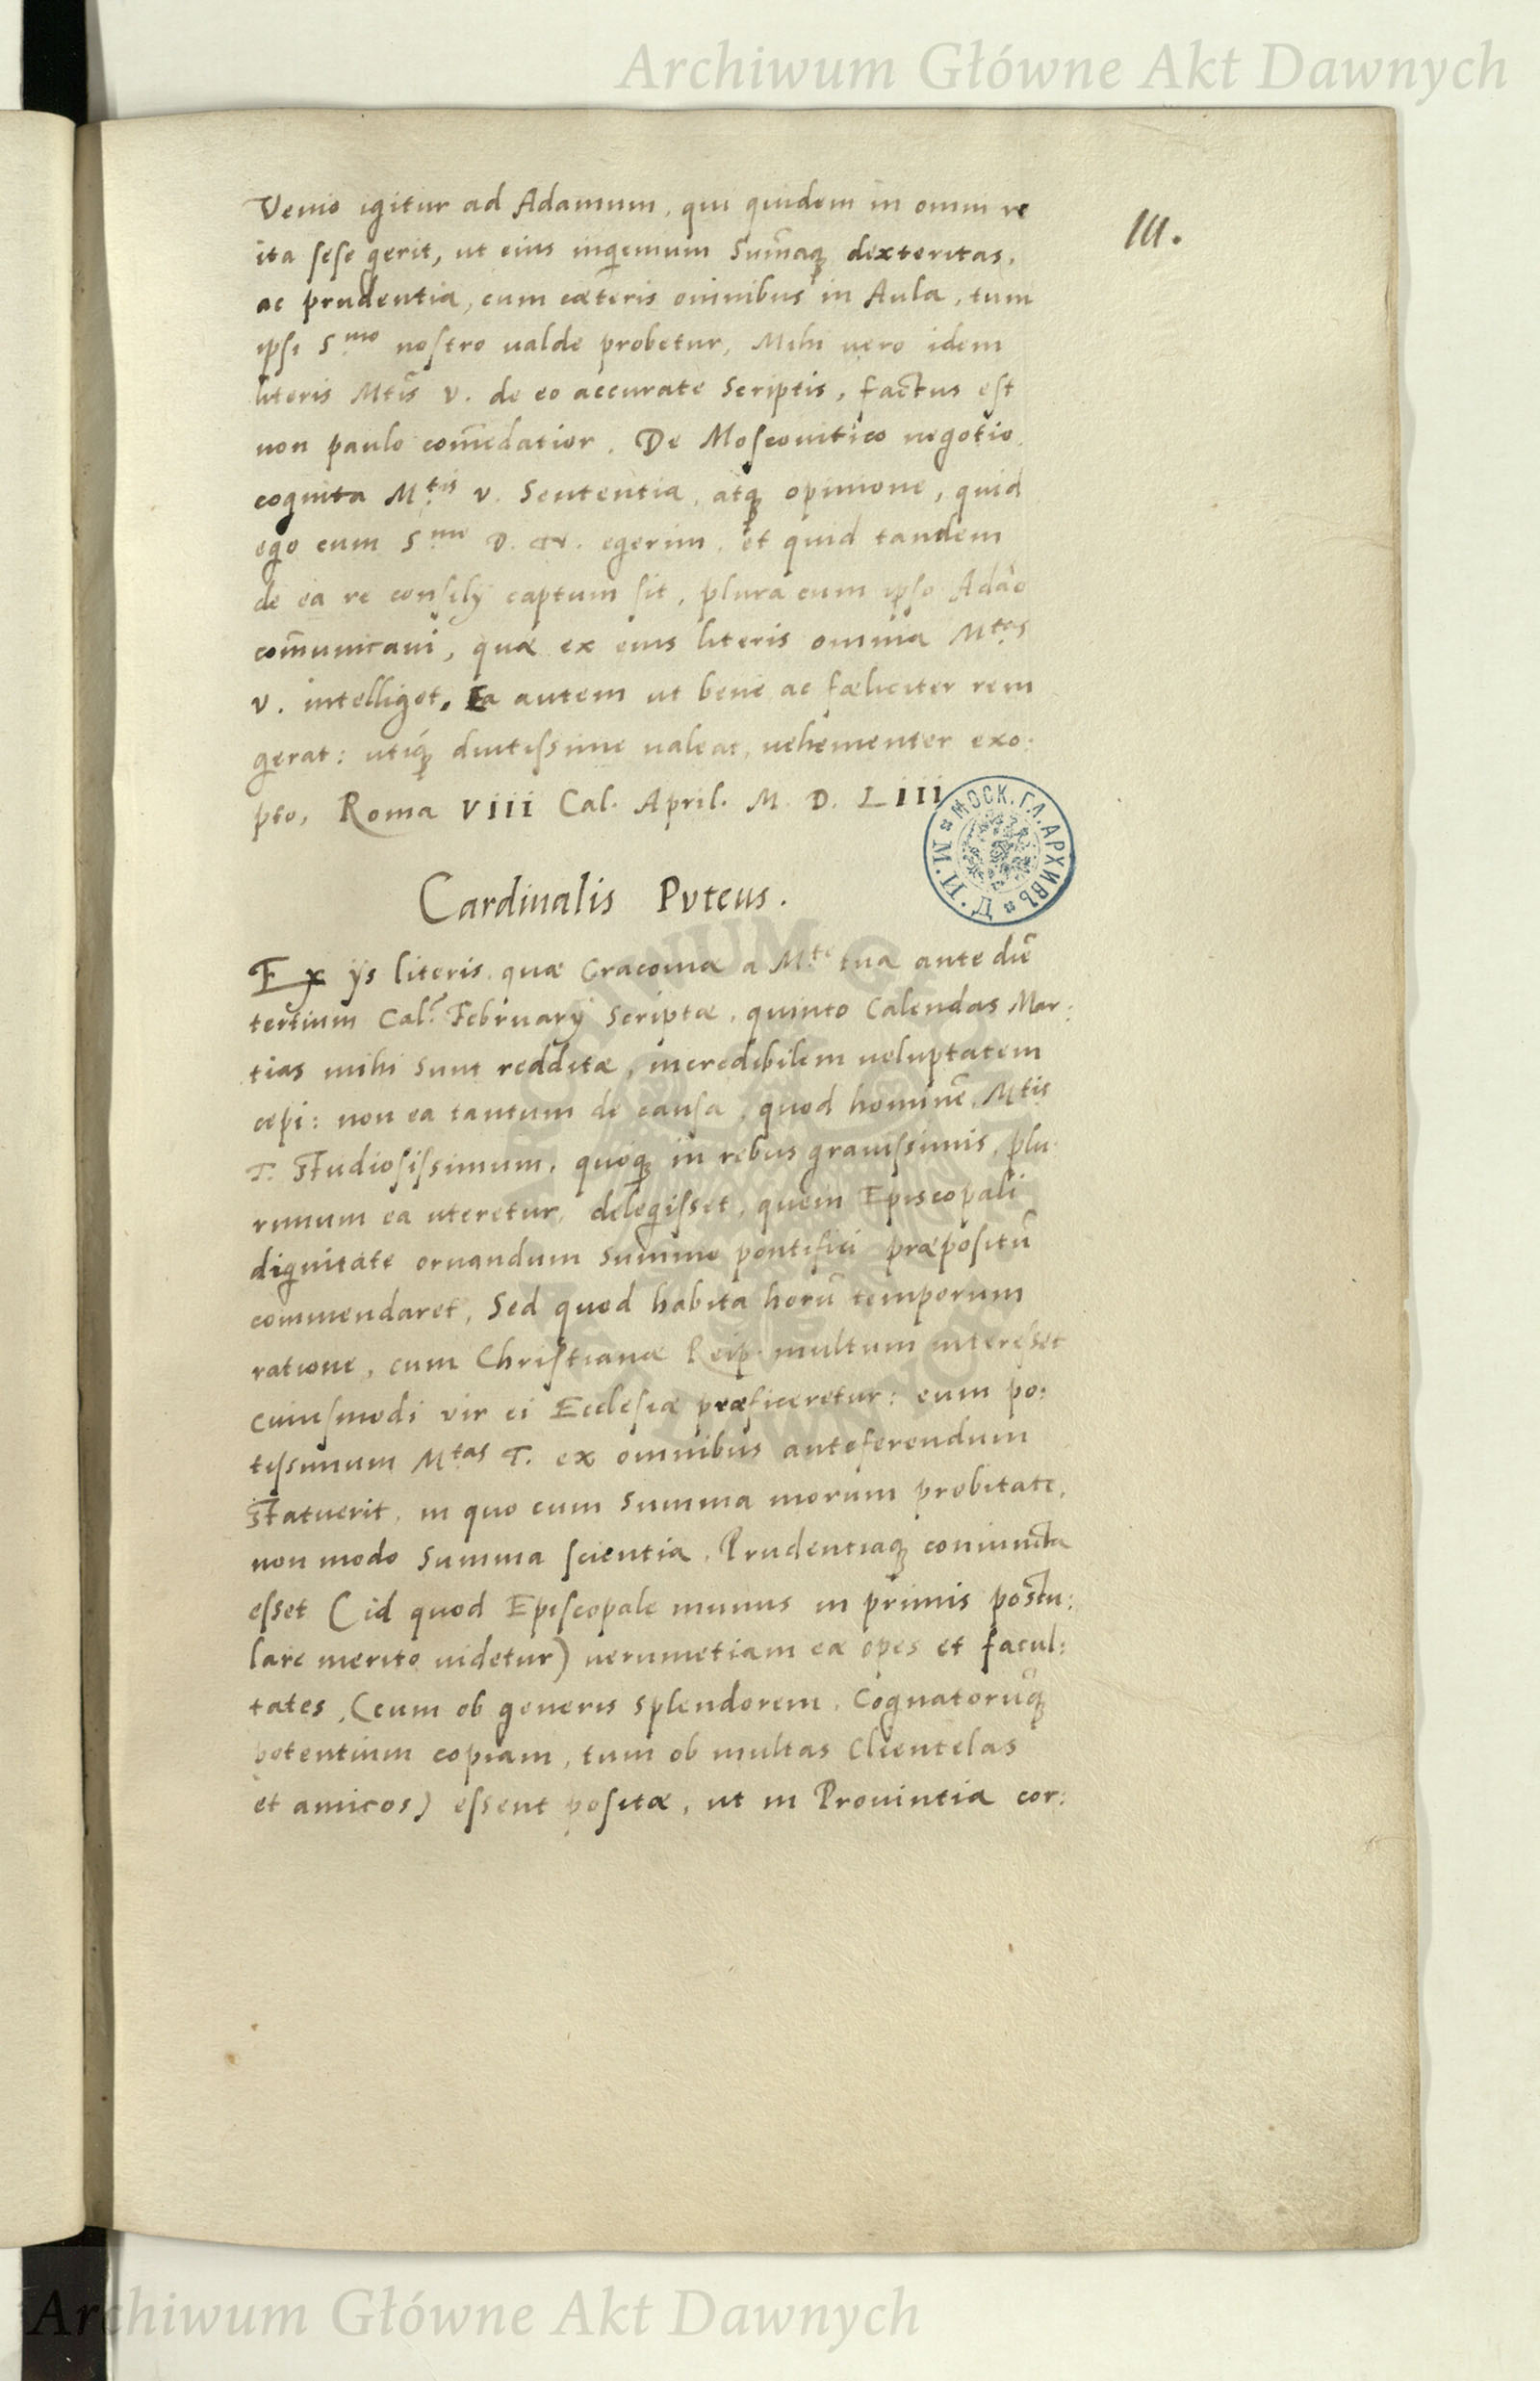 Archiwum Główne Akt Dawnych
111.
Venio igitur ad Adamum, qui quidem in omni re
ita sese gerit, ut eius ingenium Sum̃aq dexteritas,
ac prudentia, cum cæteris omnibus in Aula, tum
ipsi S.mo nostro ualde probetur, Mihi vero idem
literis Mtĩs v. de eo accurate Scriptis, factus est
non paulo com̃edatior. De Moscouitico negotio
cognita M.tis v. Sententia, atq opinione, quid
ego cum S.mo D. N. egerim, et quid tandem
de ea re consilij captum sit, plura cum ipso Adão
com̃unicaui, quæ ex eius literis omnia M.tas
v. intelliget, Ea autem ut bene ac fæliciter rem
gerat: utiq diutissime ualeat, uehementer exo:
pto, Roma viii Cal. April. M. D. Liii
МОСК. ГЛ. АРХИВЪ М. И. Д.
Cardinalis Puteus.
Ex ijs literis quæ Cracouiæ a M.te tua ante diẽ
tertium Cal. February Scriptæ, quinto Calendas Mar:
tias mihi Sunt redditæ, incredibilem uoluptatem
cæpi: non ea tantum de causa, quod hominẽ Mtis
T. Studiosissimum, quoq in rebus grauissimis, plu:
rimum ea uteretur, delegisset, quem Episcopali
dignitate ornandum Summo pontifici præpositũ
commendaret, Sed quod habita horũ temporum
ratione, cum Christianæ Reip. multum interesset
cuiusmodi vir ei Ecclesiæ præficeretur: eum po:
tissimum Mtas T. ex omnibus anteferendum
Statuerit, in quo cum Summa morum probitate,
non modo Summa scientia, Prudentiaq coniuncta
esset (id quod Episcopale munus in primis postu:
lare merito uidetur) uerumetiam eæ opes et facul:
tates, (cum ob generis Splendorem, Cognatorũq
potentium copiam, tum ob multas Clientelas
et amicos) essent positæ, ut in Prouintia cor:
Archiwum Główne Akt Dawnych